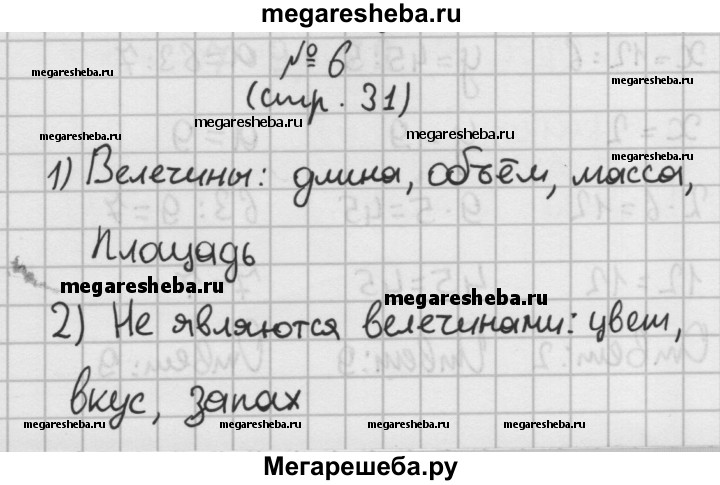 megaresheba.ru
№ 6
megaresheba.ru
megaresheba.ru
(стр. 31)
megaresheba.ru
megaresheba.ru
megaresheba.ru
megaresheba.ru
1) Велечины: длина, объём, масса,
площадь
megaresheba.ru
megaresheba.ru
2) Не являются велечинами: цвет,
вкус, запах
megaresheba.ru
megaresheba.ru
megaresheba.ru
megaresheba.ru
Мегарешеба.ру